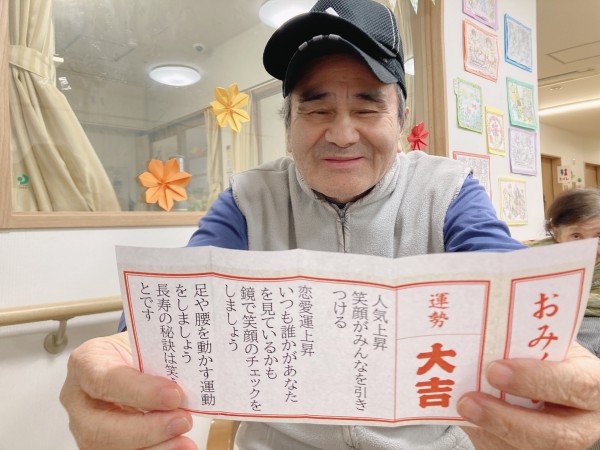 おみく
運勢
大吉
人気上昇
笑顔がみんなを引き
つける
恋愛運上昇
いつも誰かがあなた
を見ているかも
鏡で笑顔のチェックを
しましょう
足や腰を動かす運動
をしましょう
長寿の秘訣は笑う
とです